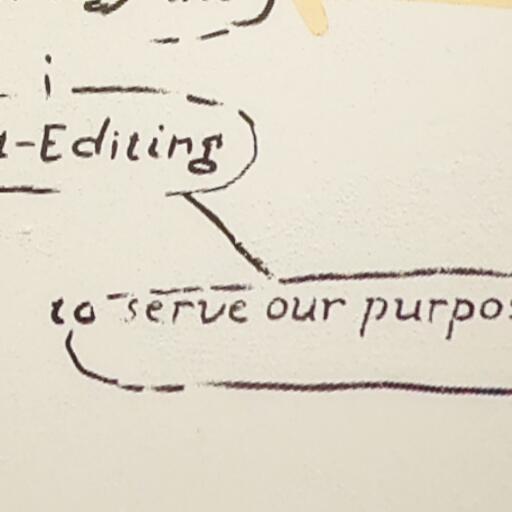 i
-Editing
to serve our purpos